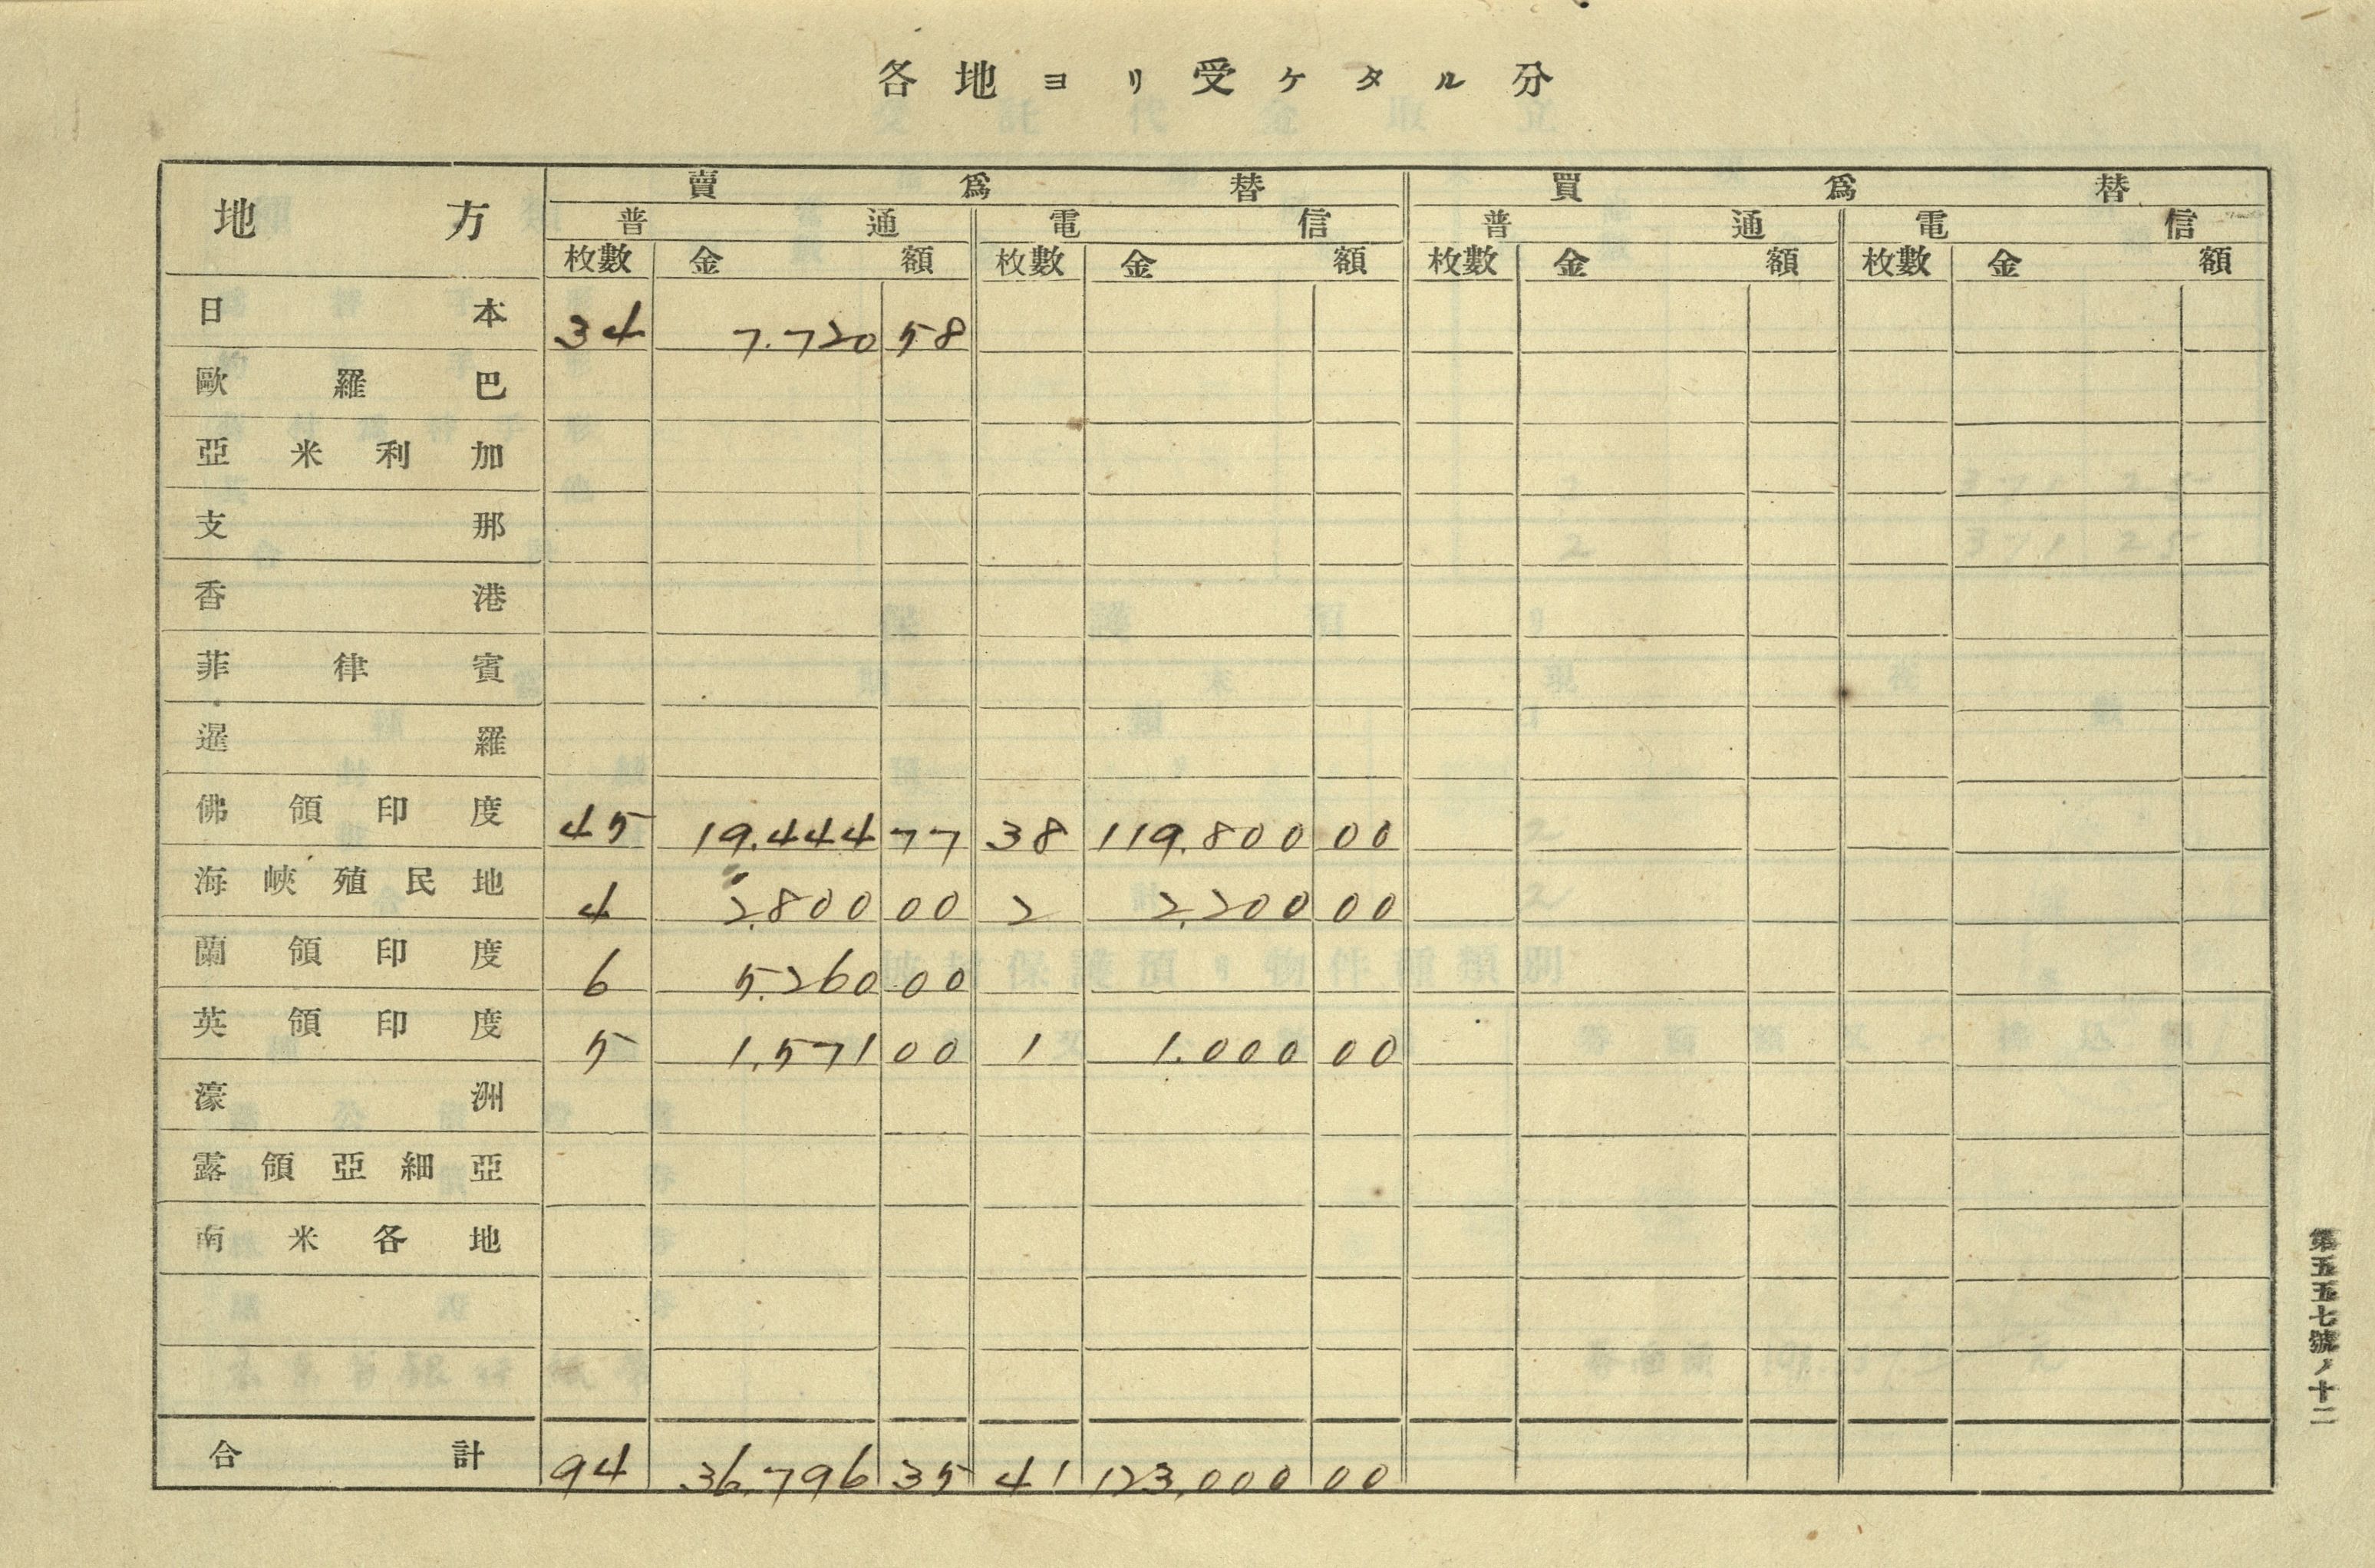 各地ヨリ受ケタル分
地方 賣爲替 買爲替
普通 電信 普通 電信
枚數 金額 枚數 金額 枚數 金額 枚數 金額
日本 34 7.720 58
歐羅巴
亞米利加
支那
香港
菲律賓
暹羅
佛領印度 45 19.444 77 38 119.800 00
海峽殖民地 4 2.800 00 2 2.200 00
蘭領印度 6 5.260 00
英領印度 5 1.571 00 1 1.000 00
濠洲
露領亞細亞
南米各地
合計 94 36.796 35 41 123.000 00
第五五七號ノ十二